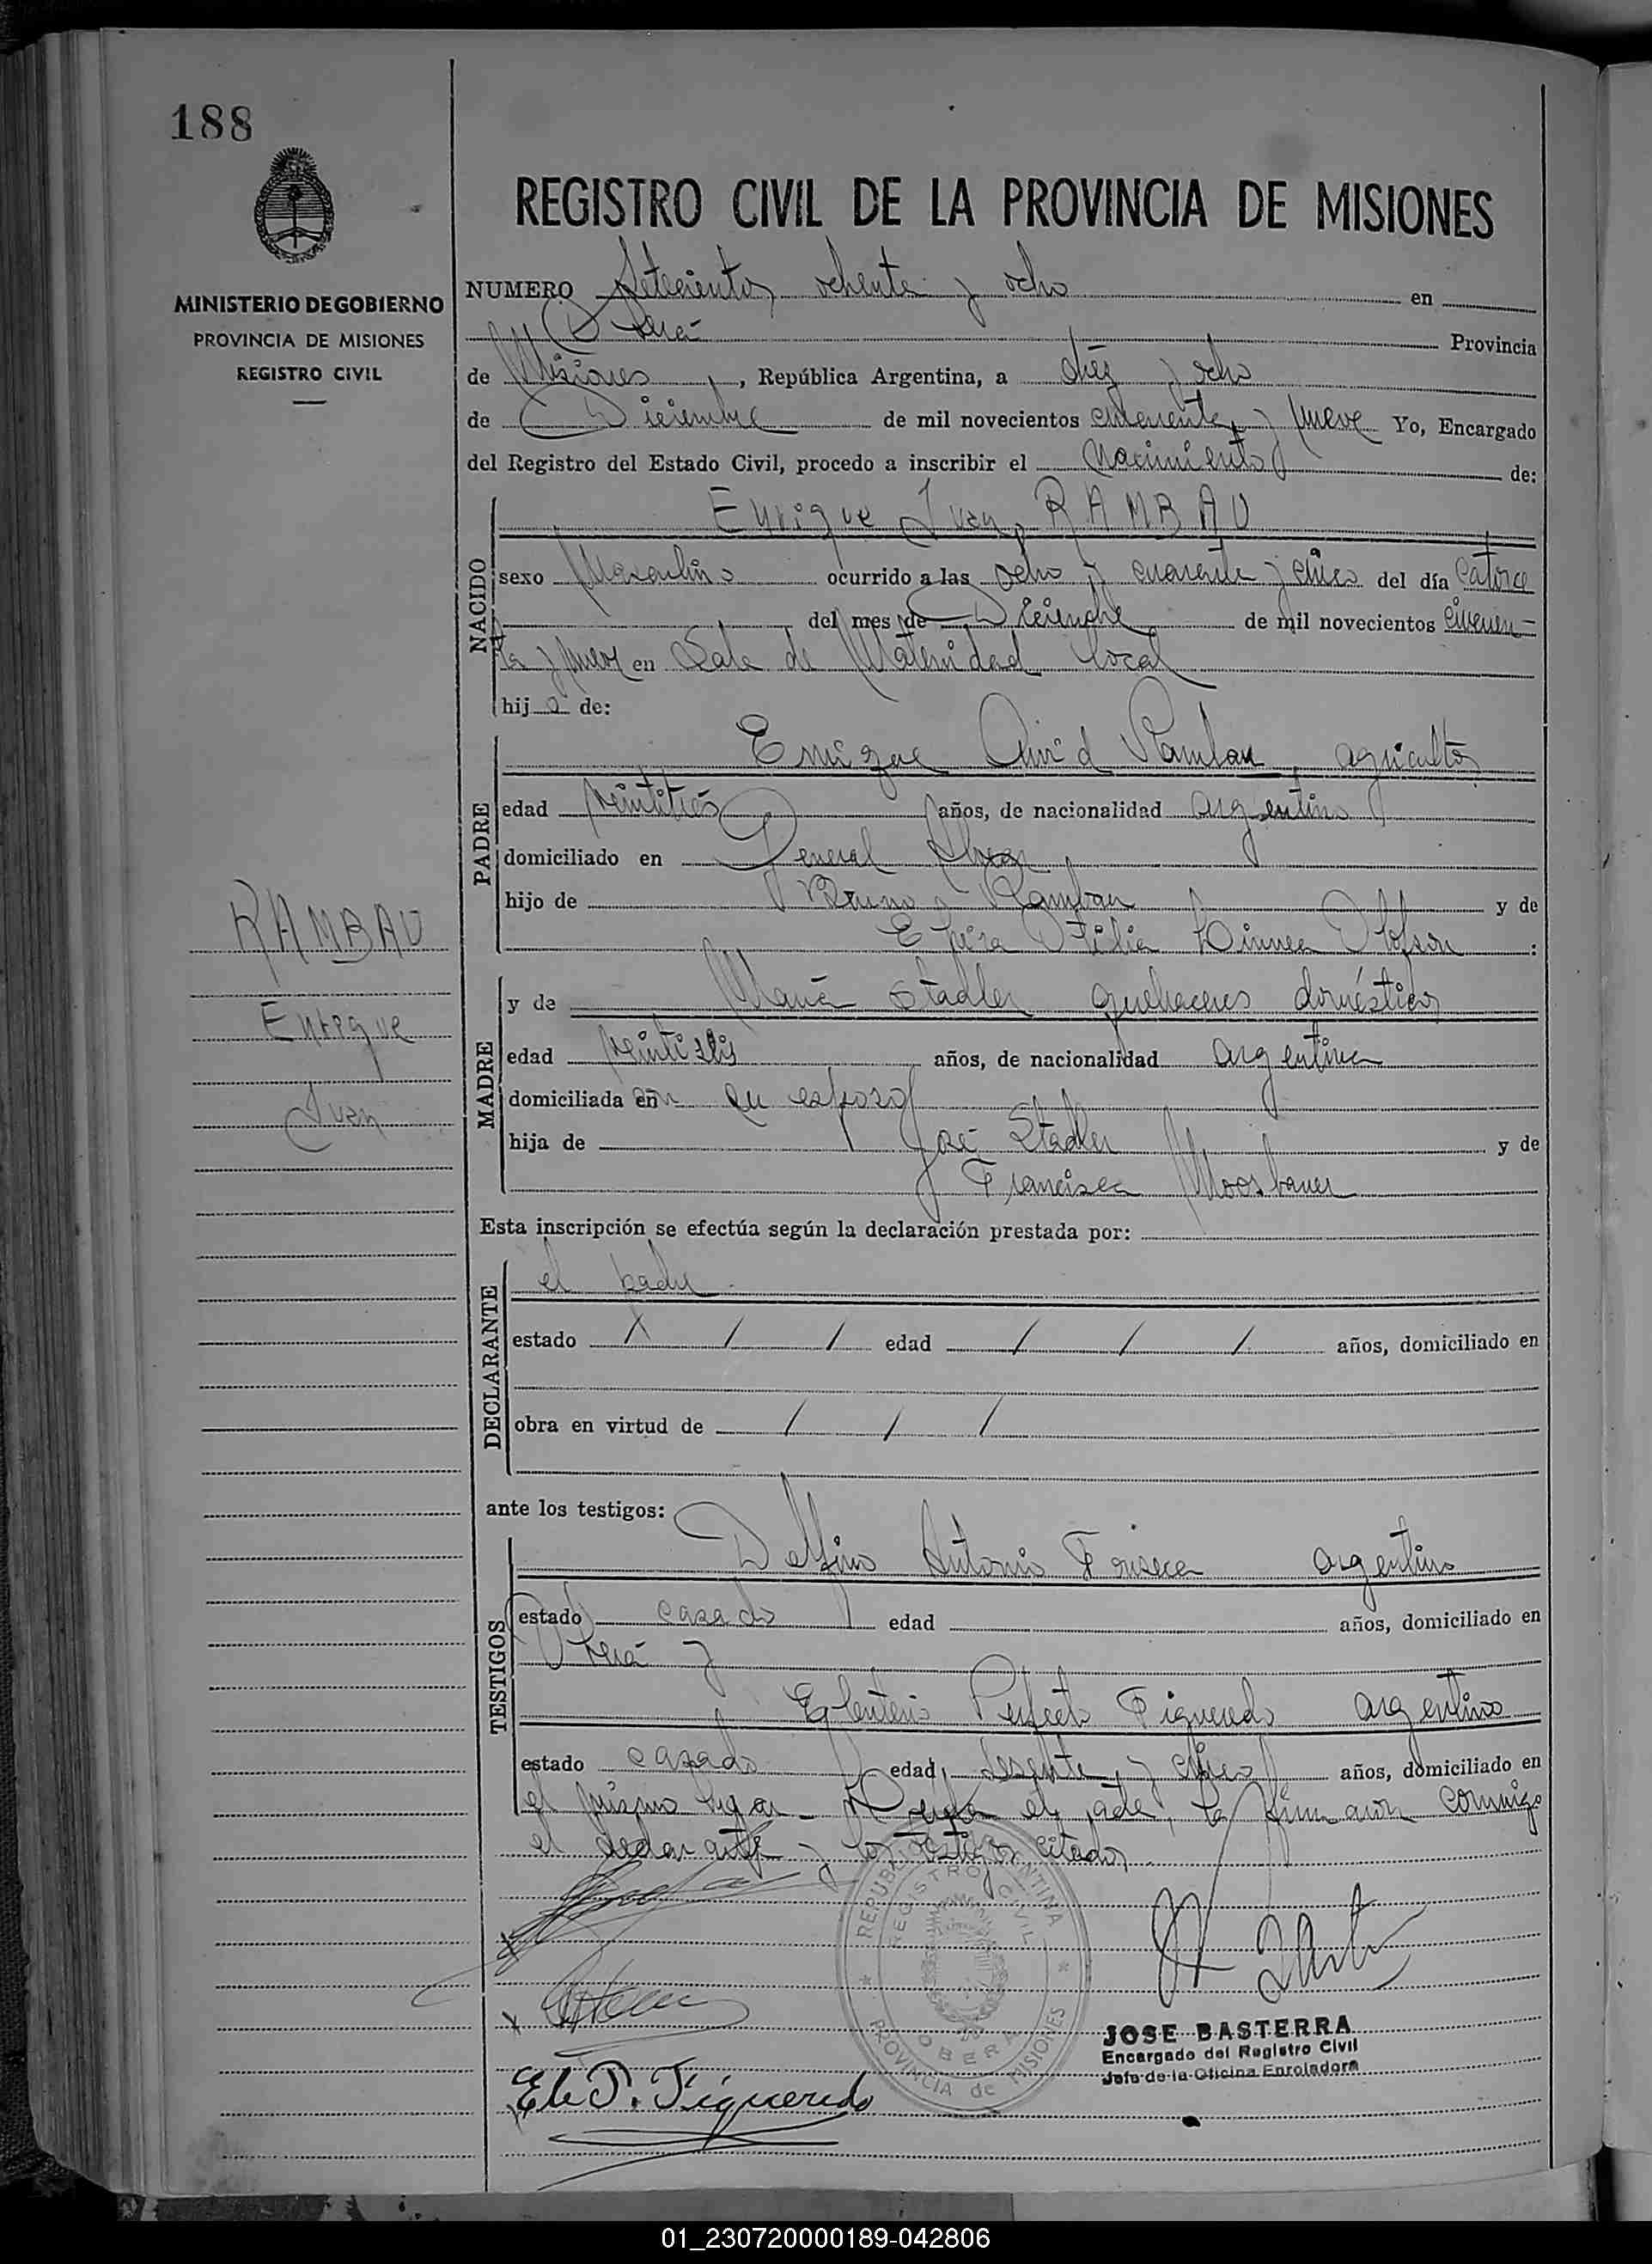 188
MINISTERIO DE GOBIERNO
PROVINCIA DE MISIONES
REGISTRO CIVIL
REGISTRO CIVIL DE LA PROVINCIA DE MISIONES
NUMERO Setecientos ochenta y ocho en
Oberá Provincia
de Misiones, República Argentina, a diez y ocho
de Diciembre de mil novecientos cincuenta y nueve Yo, Encargado
del Registro del Estado Civil, procedo a inscribir el Nacimiento de:
NACIDO
Enrique Juan RAMBAU
sexo Masculino ocurrido a las ocho y cuarenta y cinco del día catorce
del mes de Diciembre de mil novecientos cincuen-
ta y nueve en Sala de Maternidad local
hijo de:
PADRE
Enrique Rambau, agricultor
edad veintitrés años, de nacionalidad argentino
domiciliado en General Alvear
hijo de Bruno Rambau y de
Otilia :
RAMBAU
Enrique
Juan
MADRE
y de María Stadler quehaceres domésticos
edad veintiseis años, de nacionalidad argentina
domiciliada con su esposo
hija de José Stadler y de
Francisca Moosbauer
Esta inscripción se efectúa según la declaración prestada por:
DECLARANTE
el padre.
estado / / / edad / / / años, domiciliado en
obra en virtud de / / /
ante los testigos:
TESTIGOS
Delfino Antonio Fonseca argentino
estado casado edad años, domiciliado en
Oberá y
Eleuterio Perfecto Figueredo argentino
estado casado edad sesenta y cinco años, domiciliado en
el mismo lugar - Leida el acta, la firmaron conmigo
el declarante y los testigos citados.
REPUBLICA ARGENTINA
REGISTRO CIVIL
OBERA
PROVINCIA de MISIONES
JOSE BASTERRA
Encargado del Registro Civil
Jefe de la Oficina Enroladora
Ele P. Figueredo
01_230720000189-042806